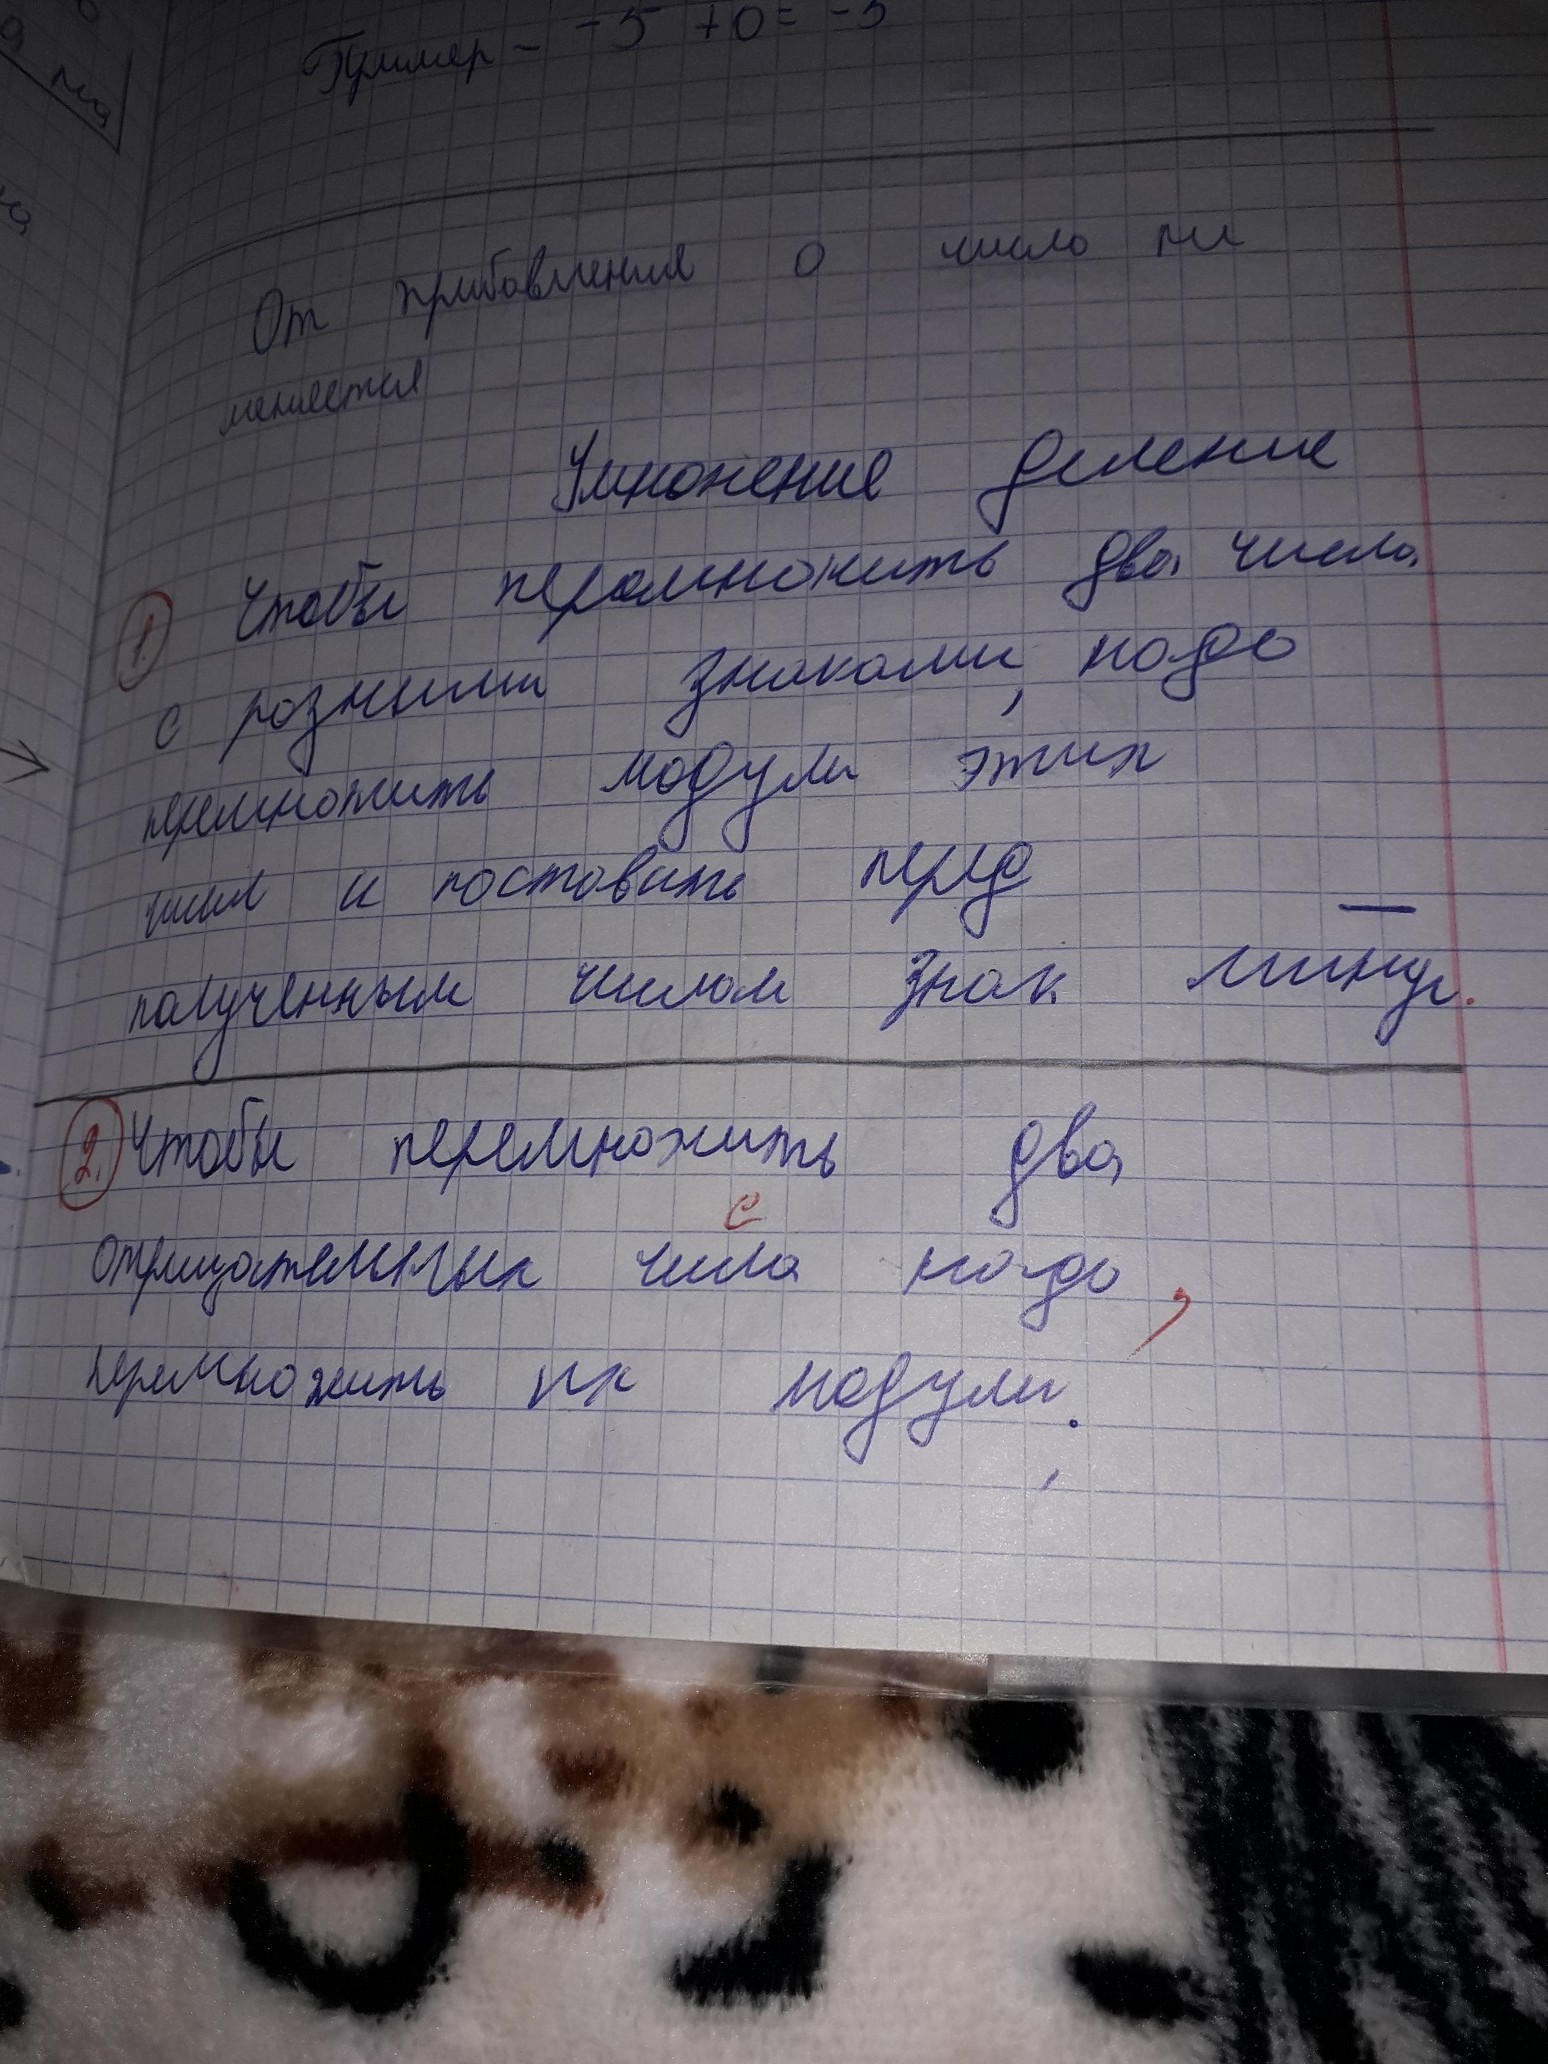 Пример - -5 + 0 = -5
От прибавления 0 число ни
меняется
Умножение деление
1. Чтобы перемножить два числа
с розными знаками, надо
перемножить модули этих
чисел и поставить перед
полученным числом знак минус.
2. Чтобы перемножить два
отрицательных числа надо,
перемножить их модули.